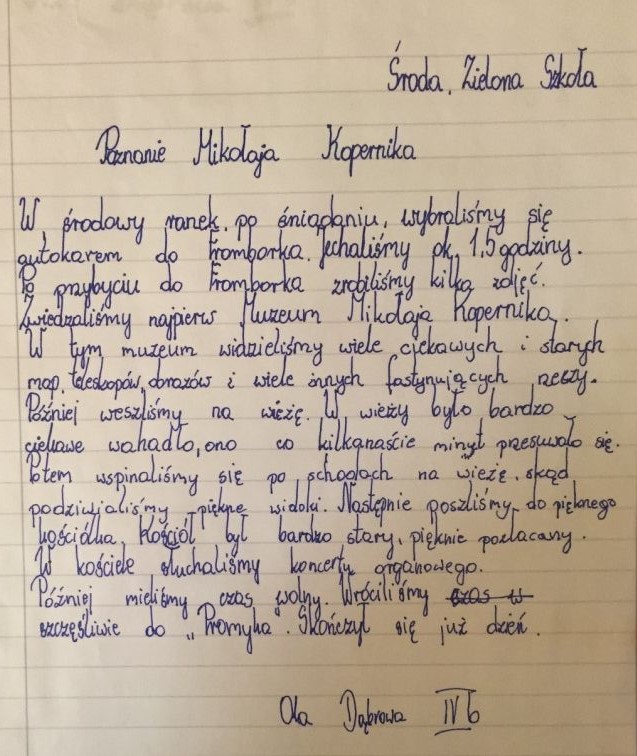 Środa, Zielona Szkoła
Poznanie Mikołaja Kopernika
W środowy ranek, po śniadaniu, wybraliśmy się
autokarem do Fromborka. Jechaliśmy ok. 1,5 godziny.
Po przybyciu do Fromborka zrobiliśmy kilka zdjęć.
Zwiedzaliśmy najpierw Muzeum Mikołaja Kopernika.
W tym muzeum widzieliśmy wiele ciekawych i starych
map, teleskopów, obrazów i wiele innych fastynujących rzeszy.
Później weszliśmy na wieżę. W wieży było bardzo
ciekawe wahadło, ono co kilkanaście minut przesuwało się.
Potem wspinaliśmy się po schodach na wieżę, skąd
podziwialiśmy piękne widoki. Następnie poszliśmy do pięknego
kościółka, Kościół był bardzo stary, pięknie pozłacany.
W kościele słuchaliśmy koncertu organowego.
Później mieliśmy czas wolny. Wróciliśmy czas w
szczęśliwie do „Promyka. Skończył się już dzień.
Ola Dąbrowa IV b